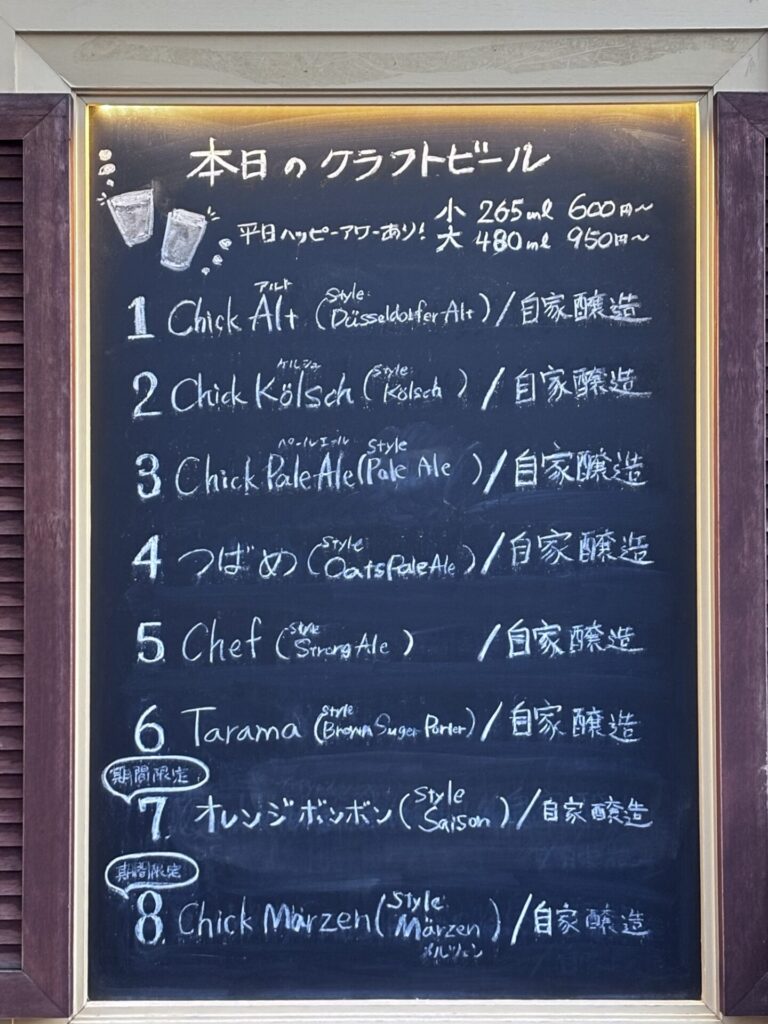 本日のクラフトビール
平日ハッピーアワーあり! 小 265ml 600円~
大 480ml 950円~
アルト
1 Chick Alt (Style: Düsseldorfer Alt) / 自家醸造
ケルシュ
2 Chick Kölsch (Style: Kölsch) / 自家醸造
ペールエール
3 Chick Pale Ale (Style Pale Ale) / 自家醸造
4 つばめ (Style: Oats Pale Ale) / 自家醸造
5 Chef (Style Strong Ale) / 自家醸造
6 Tarama (Style: Brown Suger Porter) / 自家醸造
期間限定
7. オレンジボンボン (Style Saison) / 自家醸造
期間限定
8. Chick Märzen (Style: Märzen) / 自家醸造
メルツェン